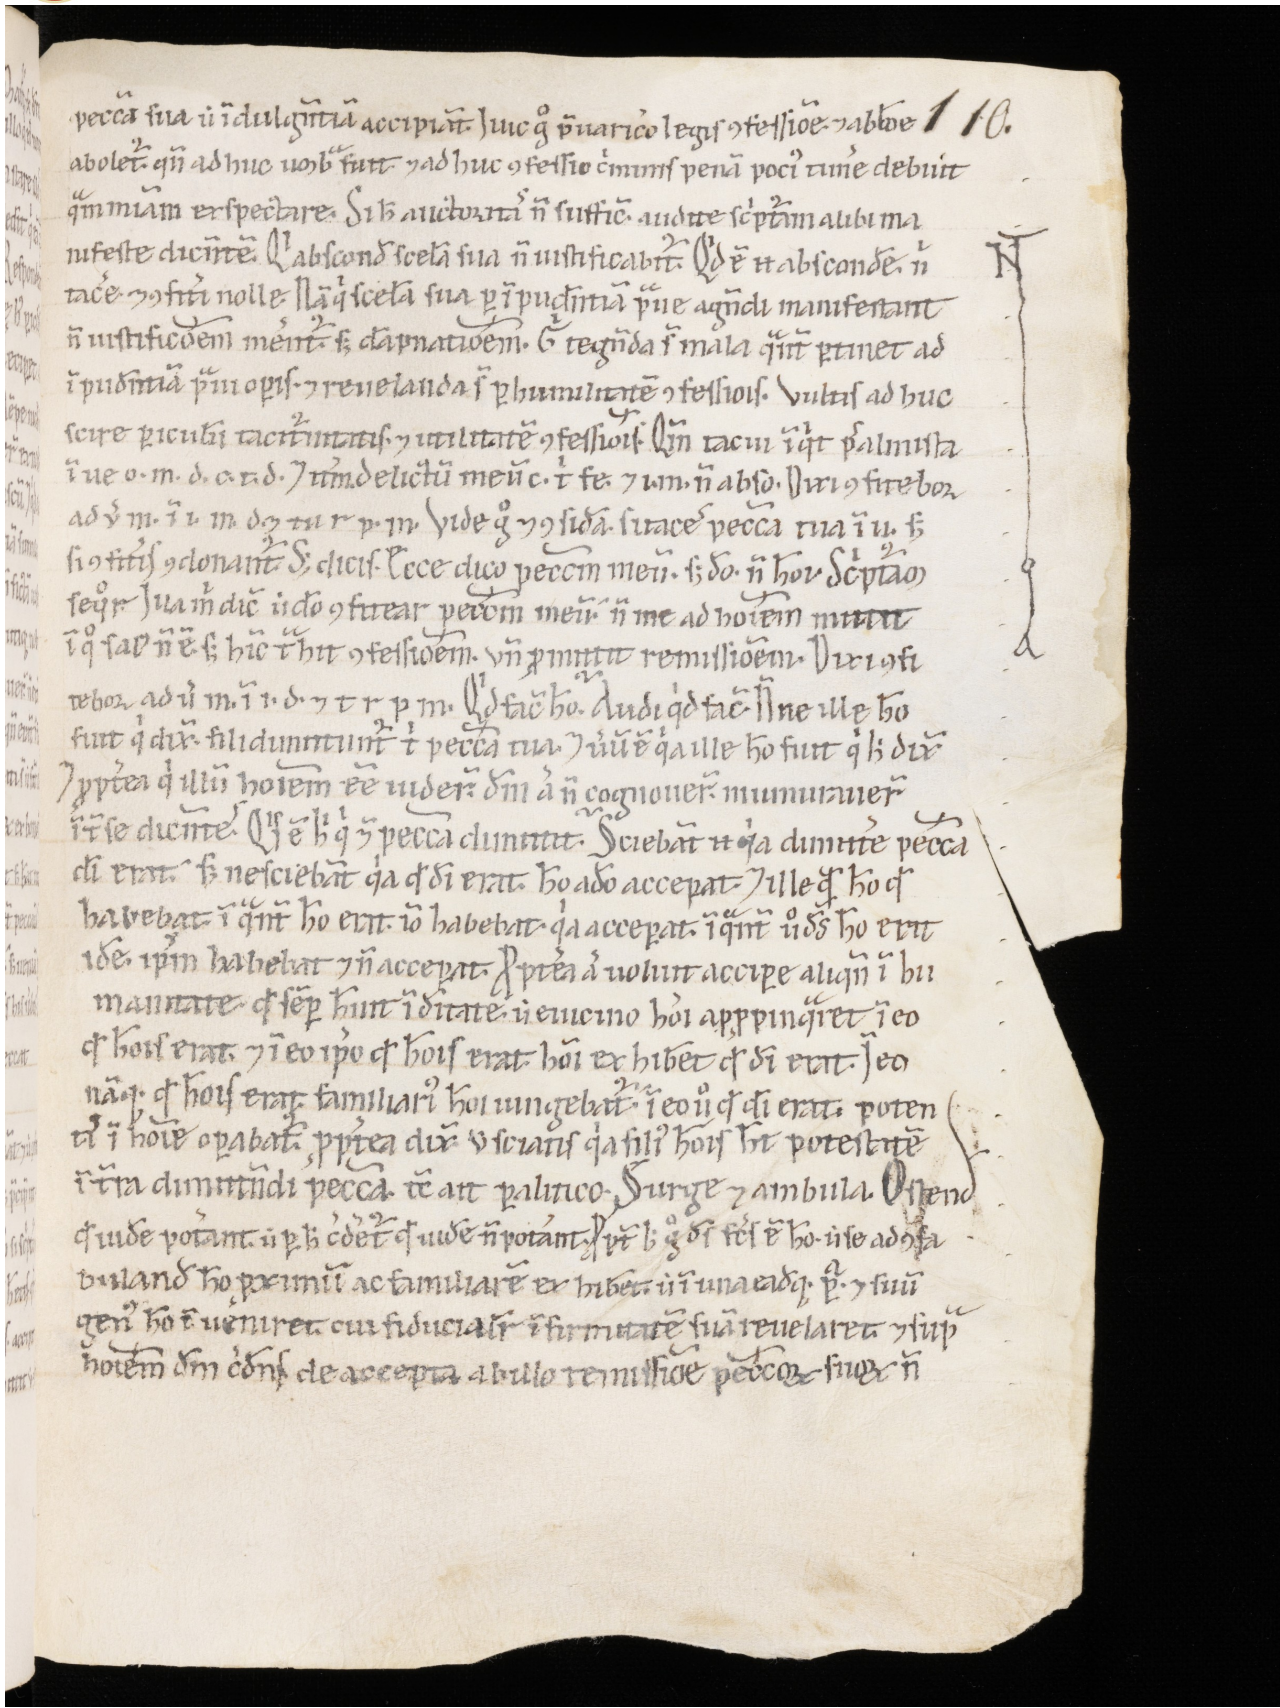 peccā sua ū īdulgn̄tiā accipiāt. Huic gͦ p̄uarico legis ꝯfessiōe. ⁊ abl̄oe 110.
abolet᷑. qn̄ adhuc umb̄ fuit ⁊ adhuc ꝯfessio c̓minis penā poci᷒ tim̄e debuit
qͣm miām expectare. Si h̄ auctoritas n̄ suffic̄. audite sc̓pt᷑am alibi ma
nifeste dicn̄tē. Qͥ abscond̄ scela sua n̄ iustificabit᷑. Qͥd ē it absconde. n̄
tac̓e. ⁊ ꝯfit̓i nolle. Nā qͥ scela sua ꝑ īpudn̄tiā p̄ue agn̄di manifestant
n̄ iustificōem mer̄nt᷑. ꝫ dāpnatiōem. G̊ tegn̄da s̄ mala qͣnt̄ ꝑtinet ad
īpudn̄tiā p̄ui oꝑis. ⁊ reuelanda s̄ ꝑ humilitatē ꝯfessiois. Vultis adhuc
scire ꝑiculū taciturnitatis. ⁊ utilitatē ꝯfessiōis. Qm̄ tacui īqͥt psalmista
īue o. m. d. c. t. d. ⁊ itm̄ delictū meū c. t̄ fe. ⁊ i. m. n̄ abso. Dixi ꝯfitebor
adū m. ī i. m. d ⁊ tu r p. m. Vide gͦ ⁊ ꝯsidā. si tac̓e pecc̄a tua ī u. ꝫ
si ꝯfit̓is ꝯdonant᷑. Sꝫ dicis. Ecce dico pecc̄m meū. ꝫ do. n̄ hoī. Sc̓pt᷑am
seqͦr. Iua m̄ dic̄ ūdo ꝯfitear pecc̄m meū. n̄ me ad hoīem mittit
ī qͦ sac̄ n̄ ē. ꝫ hīc t̄hit ꝯfessiōem. un̄ ꝓmittit remissiōem. Dixi ꝯfi
tebor adū m. ī i. d. ⁊ t r p m. Qͥd fac̄ h̄o. Audi qͥd fac̄. Nne ille h̄o
fuit qͥ dix̄. fili dimittunt᷑ t̄ peccā tua. ⁊ uū ē qͥa ille h̄o fuit qͥ h̄ dix̄
⁊ ꝓpt̓ea qͥ illū hoīem eē uider̄. dm̄ ā n̄ cognouer̄. murmurauer̄
īt̄ se dicn̄tes. Qͥs ē h̄ qͥ ⁊ peccā dimittit. Sciebāt it qͥa dimitt̓e pecc̄a
di erat. ꝫ nesciebāt qͥa qͩ di erat. h̄o a do acceꝑat. ⁊ ille qͩ h̄o qͩ
habebat. ī qͣnt̄ h̄o erat. iō habebat. qͥa acceꝑat. ī qͣnt̄ ūo ds h̄o erat
idē. ipm̄ habebat ⁊ n̄ acceꝑat. Ꝓpt̓ea ā uoluit acciꝑe aliqn̄ ī hu
manitate. qͩ semꝑ h̄uit ī ditate. ū e uicino h̄oi apꝓpinqͣret ī eo
qͩ hoīs erat. ⁊ ī eo ip̄o qͩ hoīs erat. h̄oi exhibet qͩ di erat. I eo
nāqꝫ qͩ hoīs erat. familiari᷒ h̄oi iungebat᷑. ī eo ūo qͩ di erat. poten
ti᷒ ī hoīe oꝑabat᷑. ꝓpt̓ea dix̄. ū sciatis qͥa fili᷒ hoīs h̄t potestatē
ī t̄ra dimittn̄di peccā. tc̄ ait ꝑalitico. Surge ⁊ ambula. Ostend̄
qͩ uide pot̓ant. ū ꝑ h̄ c̓det᷑ qͩ uide n̄ pot̓ant. Ꝓpt̄ h̄ gͦ ds fc̄s ē h̄o. ū se ad ꝯfa
buland̄ h̄o ꝓximū ac familiarē exhibet. ū ī una eadqꝫ. pͣ. ⁊ suū
gen᷒ h̄o īueniret. cui fiducialr̄ īfirmitatē suā reuelaret. ⁊ sup̄
hoīem dm̄ c̓dns de accepta ab illo remissiōe peccōꝝ suoꝝ n̄
N
a